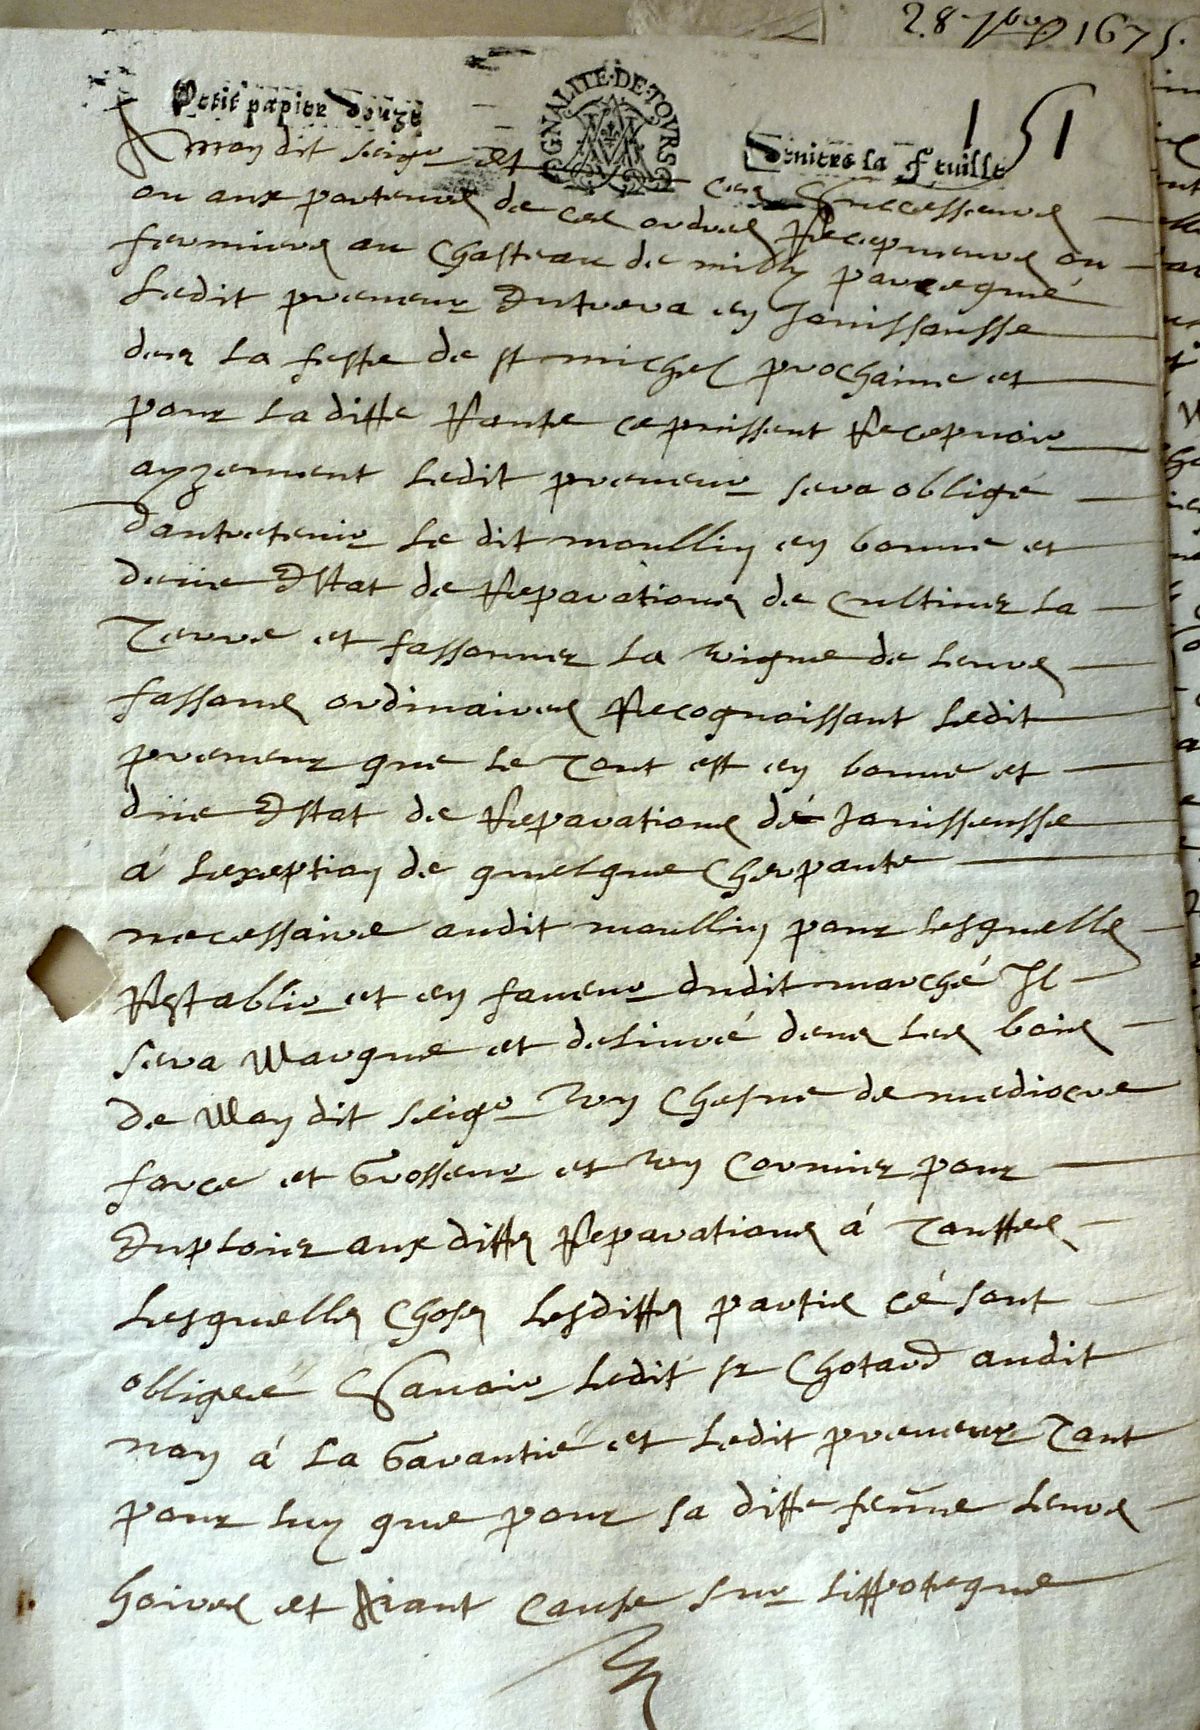 28 7bre 1675.
Petit papier Douze
GNALITE·DE·TOVRS
Deniers la Feuille
151
A mon dit seigr et ces successeurs
ou aux porteurs de ces ordres Recepueurs ou
fermiers au Chasteau de milly parcequé
Ledit preneur Entrera en Jouissansse
des la feste de st michel prochaine et
pour la ditte Rante ce puissent Recepuoir
ayzement Ledit preneur sera obligé
dantretenir Le dit moullin en bonne et
deüe Estat de Reparations de Cultiuer la
Terre et fassonner la vigne de Leurs
fassons ordinaires Recognoissant Ledit
preneur que le Tout est en bonne et
düe Estat de Reparations dé Jouissensse
á Lexeption de quelque Cherpante
necessaire audit moullin pour Lesquelle
Restablir et en faueur dudit marché Il
sera Marque et deliuré dens Les bois
de Mon dit seigr vn Chesne de mediocre
force et Grosseur et vn Cormier pour
Enploier aux dittes Reparations á Touttes
Lesquelles Choses Lesdittes partie cé sont
obligeé Sauoir Ledit sr Chotard audit
non á La Garantié et Ledit preneur Tant
pour Luy que pour sa ditte feme Leurs
hoires et Aiant Cause sur Lippotegue